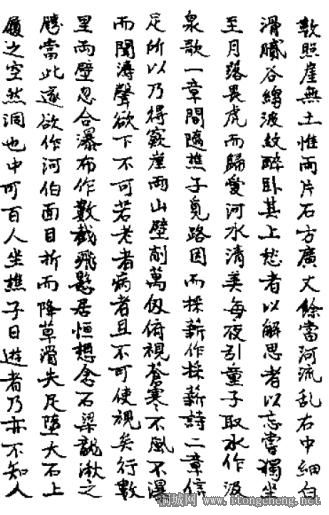 數照崖無土惟兩片石方廣丈餘當河流亂右中細白
滑膩谷縐波紋醉卧其上愁者以解思者以忘嘗獨坐
至月落畏虎而歸愛河水清美每夜引童子取水作汲
泉歌一章間隨樵子覓路因而採薪作採薪詩二章信
足所以乃得竅崖兩山壁削萬仞俯視蒼寒不風不瀑
而聞濤聲欲下不可若老者病者且不可使視矣行數
里兩壁忽合瀑布作數截飛懸居恒想念石梁龍湫之
勝當此遂欲作河伯面目折而降草滑失足墮大石上
履之空然洞也中可百人坐樵子曰遊者乃亦不知人